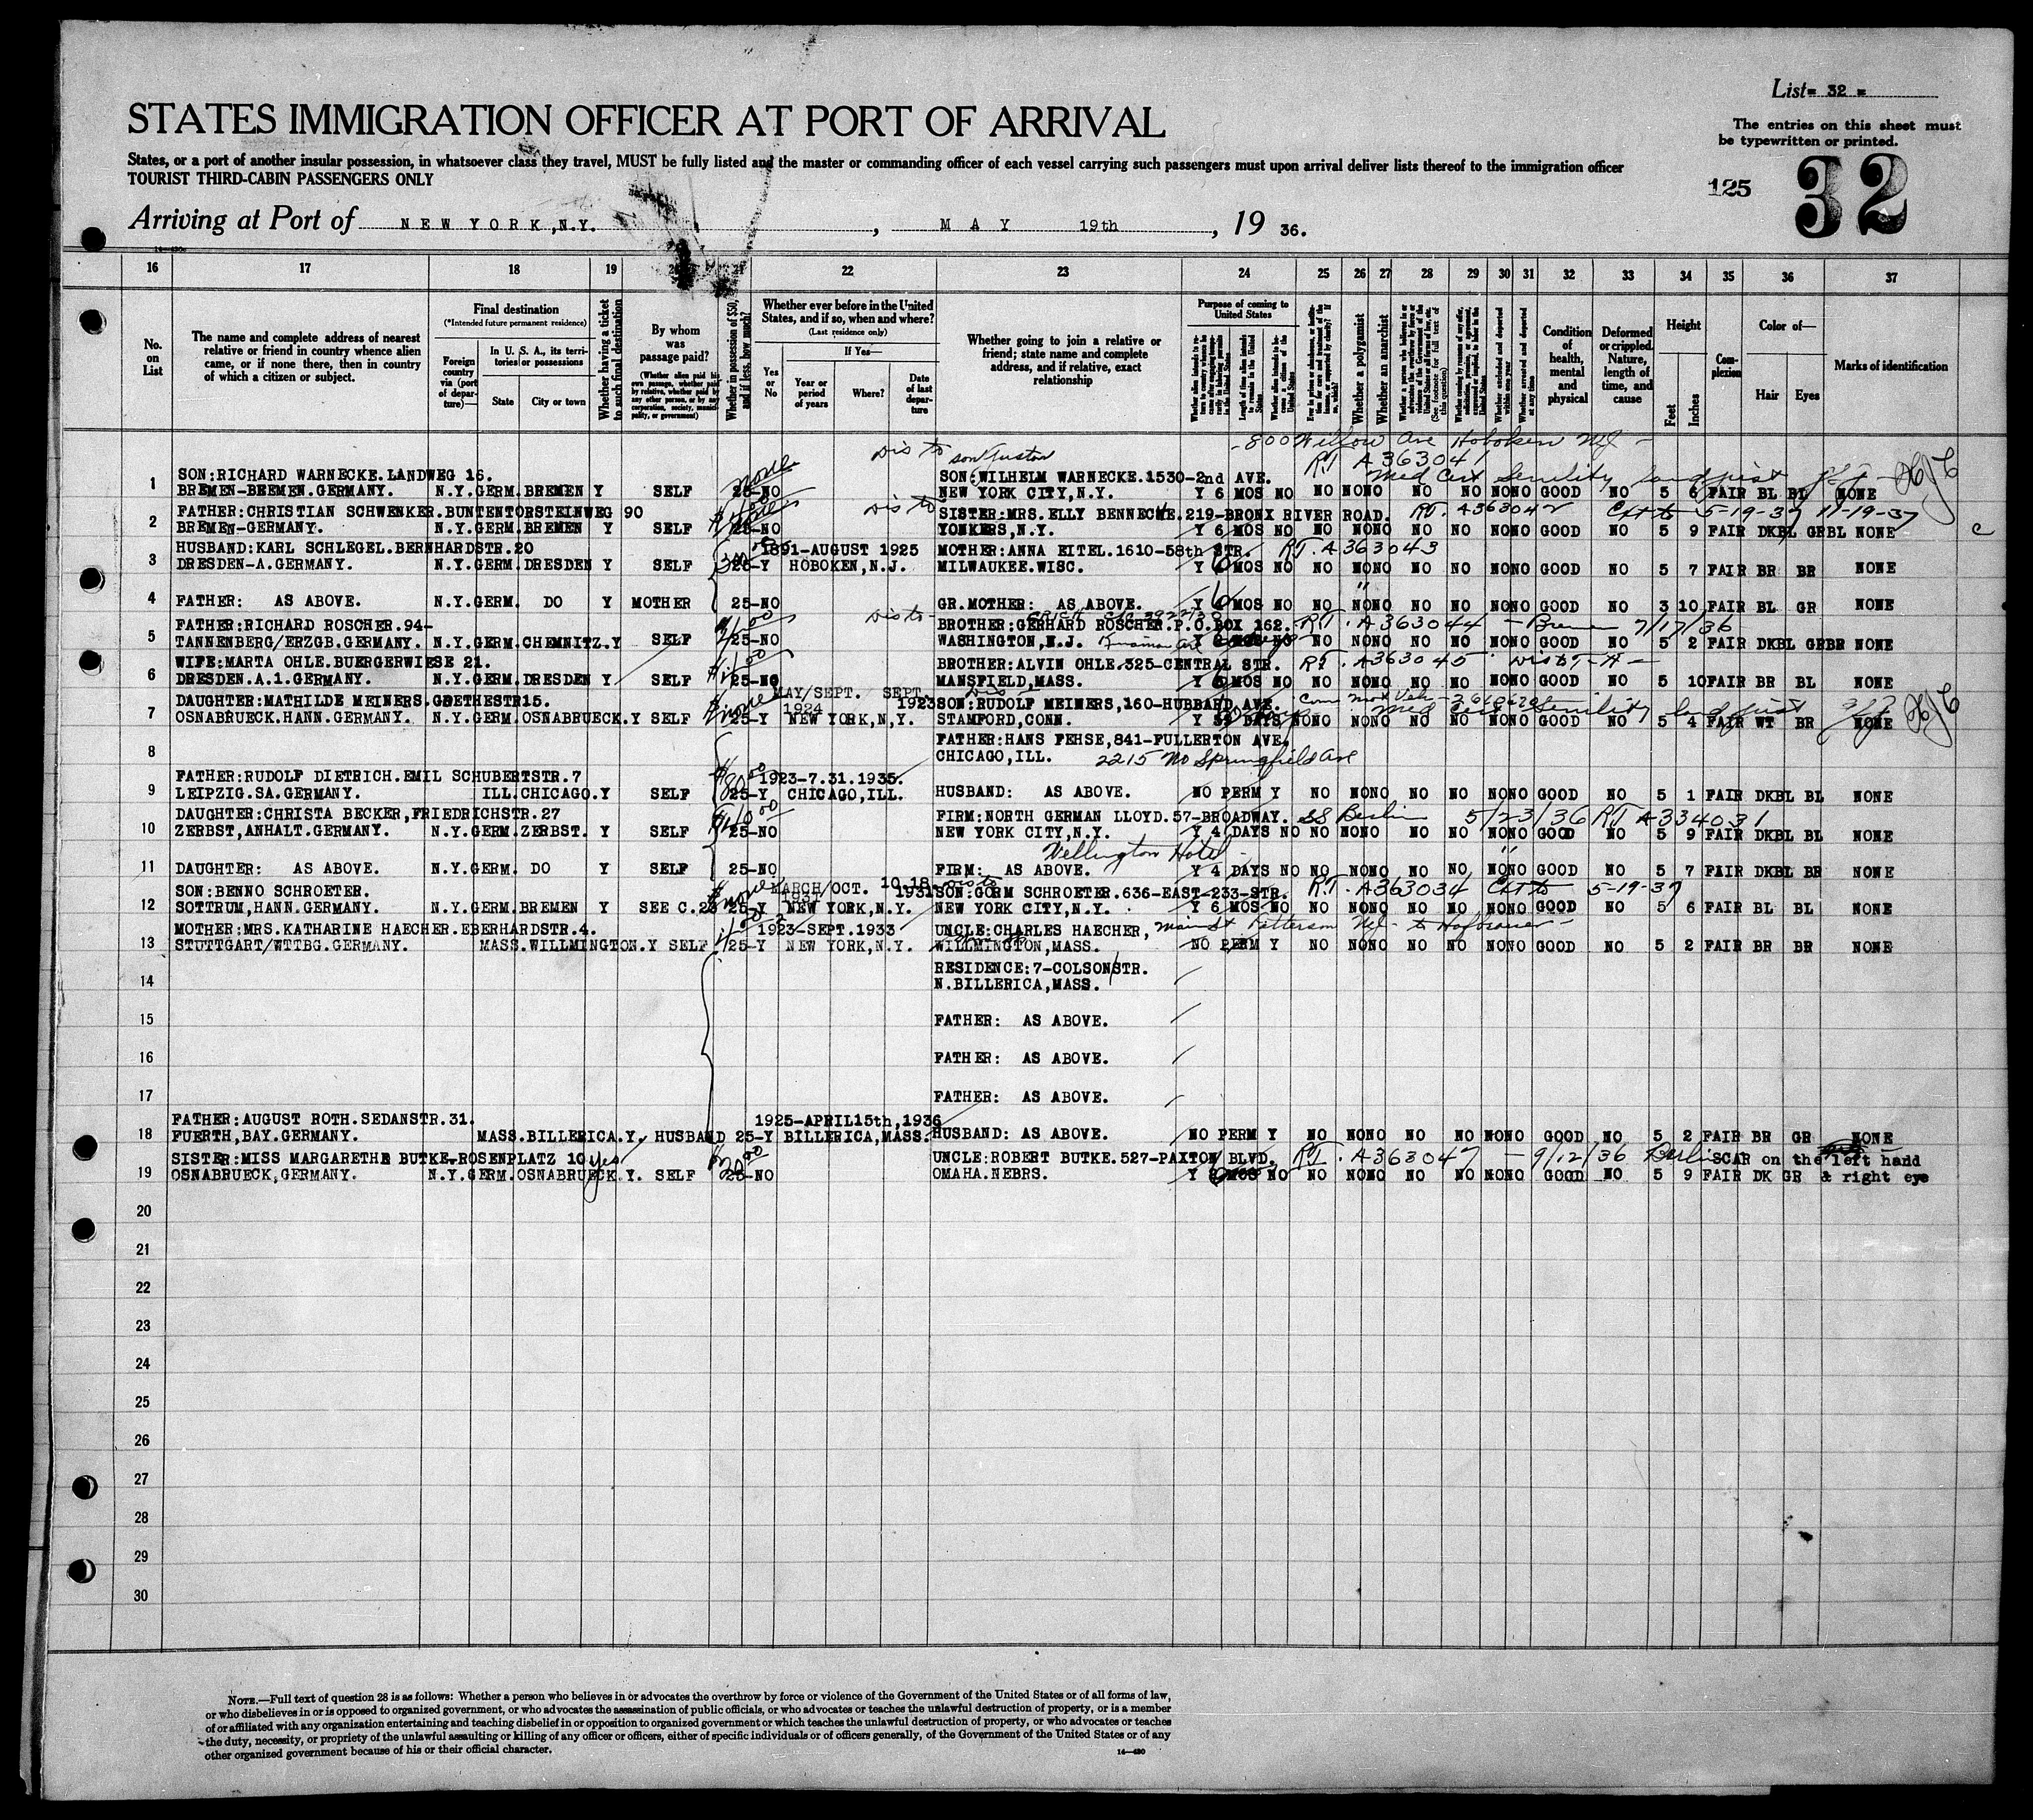 List= 32 =
STATES IMMIGRATION OFFICER AT PORT OF ARRIVAL
The entries on this sheet must
be typewritten or printed.
States, or a port of another insular possession, in whatsoever class they travel, MUST be fully listed and the master or commanding officer of each vessel carrying such passengers must upon arrival deliver lists thereof to the immigration officer
TOURIST THIRD-CABIN PASSENGERS ONLY
125 32
Arriving at Port of NEW YORK, N.Y., MAY 19th, 19 36.
16 17 18 19 20 21 22 23 24 25 26 27 28 29 30 31 32 33 34 35 36 37
No. on List
The name and complete address of nearest relative or friend in country whence alien came, or if none there, then in country of which a citizen or subject.
Final destination
(*Intended future permanent residence)
Foreign country via (port of departure)—
In U. S. A., its territories or possessions
State City or town
Whether having a ticket to such final destination
By whom was passage paid?
(Whether alien paid his own passage, whether paid by relative, whether paid by any other person, or by any corporation, society, municipality, or government)
Whether in possession of $50, and if less, how much?
Whether ever before in the United States, and if so, when and where?
(Last residence only)
Yes or No
If Yes—
Year or period of years
Where?
Date of last departure
Whether going to join a relative or friend; state name and complete address, and if relative, exact relationship
Purpose of coming to United States
Length of time alien intends to remain in the United States
Whether a polygamist
Whether an anarchist
Condition of health, mental and physical
Deformed or crippled. Nature, length of time, and cause
Height
Feet Inches
Complexion
Color of—
Hair Eyes
Marks of identification
800 Willow Ave Hoboken NJ
Dis to son Gustav
RT A363041
SON:RICHARD WARNECKE.LANDWEG 16. none SON:WILHELM WARNECKE.1530-2nd AVE. Med Cert Senility
1 BREMEN-BREMEN.GERMANY. N.Y.GERM.BREMEN Y SELF 25-NO NEW YORK CITY,N.Y. Y 6 MOS NO NO NONO NO NO NONO GOOD NO 5 6 FAIR BL BL NONE
FATHER:CHRISTIAN SCHWENKER.BUNTENTORSTEINWEG 90 Dis to SISTER:MRS.ELLY BENNECKE.219-BRONX RIVER ROAD. RT. A363042 5-19-37 11-19-37
2 BREMEN-GERMANY. N.Y.GERM.BREMEN Y SELF 25-NO YONKERS,N.Y. Y 6 MOS NO NO NONO NO NO NONO GOOD NO 5 9 FAIR DKBL GRBL NONE c
HUSBAND:KARL SCHLEGEL.BERNHARDSTR.20 1891-AUGUST 1925 MOTHER:ANNA EITEL.1610-58th STR. RT. A363043
3 DRESDEN-A.GERMANY. N.Y.GERM.DRESDEN Y SELF 25-Y HOBOKEN,N.J. MILWAUKEE.WISC. Y 6 MOS NO NO NONO NO NO NONO GOOD NO 5 7 FAIR BR BR NONE
4 FATHER: AS ABOVE. N.Y.GERM. DO Y MOTHER 25-NO GR.MOTHER: AS ABOVE. Y 6 MOS NO NO NONO NO NO NONO GOOD NO 3 10 FAIR BL GR NONE
FATHER:RICHARD ROSCHER.94- Dis to BROTHER:GERHARD ROSCHER.P.O.BOX 162. RT. A363044 - Bremen 7/17/36
5 TANNENBERG/ERZGB.GERMANY. N.Y.GERM.CHEMNITZ.Y SELF 25-NO WASHINGTON,N.J. Y NO NO NONO NO NO NONO GOOD NO 5 2 FAIR DKBL GRBR NONE
WIFE:MARTA OHLE.BUERGERWIESE 21. BROTHER:ALVIN OHLE.325-CENTRAL STR. RT. A363045
6 DRESDEN.A.1.GERMANY. N.Y.GERM.DRESDEN Y SELF 25-NO MANSFIELD,MASS. Y 6 MOS NO NO NONO NO NO NONO GOOD NO 5 10 FAIR BR BL NONE
DAUGHTER:MATHILDE MEINERS.GOETHESTR15. none MAY/SEPT. 1924 SEPT. 1923 SON:RUDOLF MEINERS,160-HUBBARD AVE. Med Cert Senility
7 OSNABRUECK.HANN.GERMANY. N.Y.GERM.OSNABRUECK.Y SELF 25-Y NEW YORK,N,Y. STAMFORD,CONN. Y DAYS NO NONO NO NO NONO GOOD NO 5 4 FAIR WT BR NONE
FATHER:HANS FEHSE,841-FULLERTON AVE.
8 CHICAGO,ILL. 2215 No Springfield Ave
FATHER:RUDOLF DIETRICH.EMIL SCHUBERTSTR.7 1923-7.31.1935.
9 LEIPZIG.SA.GERMANY. ILL.CHICAGO.Y SELF 25-Y CHICAGO,ILL. HUSBAND: AS ABOVE. NO PERM Y NO NONO NO NO NONO GOOD NO 5 1 FAIR DKBL BL NONE
DAUGHTER:CHRISTA BECKER,FRIEDRICHSTR.27 FIRM:NORTH GERMAN LLOYD.57-BROADWAY. SS Berlin 5/23/36 RT A334031
10 ZERBST,ANHALT.GERMANY. N.Y.GERM.ZERBST. Y SELF 25-NO NEW YORK CITY,N.Y. Y 4 DAYS NO NO NONO NO NO NONO GOOD NO 5 9 FAIR DKBL BL NONE
Wellington Hotel -
11 DAUGHTER: AS ABOVE. N.Y.GERM. DO Y SELF 25-NO FIRM: AS ABOVE. Y 4 DAYS NO NO NONO NO NO NONO GOOD NO 5 7 FAIR DKBL BR NONE
SON:BENNO SCHROETER. none MARCH/OCT. 1931 10.18. 1931 SON:GORM SCHROETER.636-EAST-233-STR. RT. A363034 5-19-37
12 SOTTRUM,HANN.GERMANY. N.Y.GERM.BREMEN Y SEE C.23 25-Y NEW YORK,N.Y. NEW YORK CITY,N.Y. Y 6 MOS NO NO NONO NO NO NONO GOOD NO 5 6 FAIR BL BL NONE
MOTHER:MRS.KATHARINE HAECHER.EBERHARDSTR.4. 1923-SEPT.1933 UNCLE:CHARLES HAECHER, Main St. Patterson NJ - to Hofbrauer
13 STUTTGART/WTTBG.GERMANY. MASS.WILLMINGTON.Y SELF 25-Y NEW YORK,N.Y. WILLMINGTON,MASS. NO PERM Y NO NONO NO NO NONO GOOD NO 5 2 FAIR BR BR NONE
RESIDENCE:7-COLSONSTR.
14 N.BILLERICA,MASS.
15 FATHER: AS ABOVE.
16 FATHER: AS ABOVE.
17 FATHER: AS ABOVE.
FATHER:AUGUST ROTH.SEDANSTR.31. 1925-APRIL15th,1936
18 FUERTH,BAY.GERMANY. MASS.BILLERICA.Y. HUSBAND 25-Y BILLERICA,MASS. HUSBAND: AS ABOVE. NO PERM Y NO NONO NO NO NONO GOOD NO 5 2 FAIR BR GR NONE
SISTER:MISS MARGARETHE BUTKE.ROSENPLATZ 10 yes UNCLE:ROBERT BUTKE.527-PAXTON BLVD. RT. A363047 - 9/12/36 Berlin SCAR on the left hand
19 OSNABRUECK,GERMANY. N.Y.GERM.OSNABRUECK.Y. SELF 25-NO OMAHA.NEBRS. Y 6 MOS NO NO NONO NO NO NONO GOOD NO 5 9 FAIR DK GR & right eye
20
21
22
23
24
25
26
27
28
29
30
NOTE.—Full text of question 28 is as follows: Whether a person who believes in or advocates the overthrow by force or violence of the Government of the United States or of all forms of law,
or who disbelieves in or is opposed to organized government, or who advocates the assassination of public officials, or who advocates or teaches the unlawful destruction of property, or is a member
of or affiliated with any organization entertaining and teaching disbelief in or opposition to organized government or which teaches the unlawful destruction of property, or who advocates or teaches
the duty, necessity, or propriety of the unlawful assaulting or killing of any officer or officers, either of specific individuals or of officers generally, of the Government of the United States or of any
other organized government because of his or their official character.
14—430